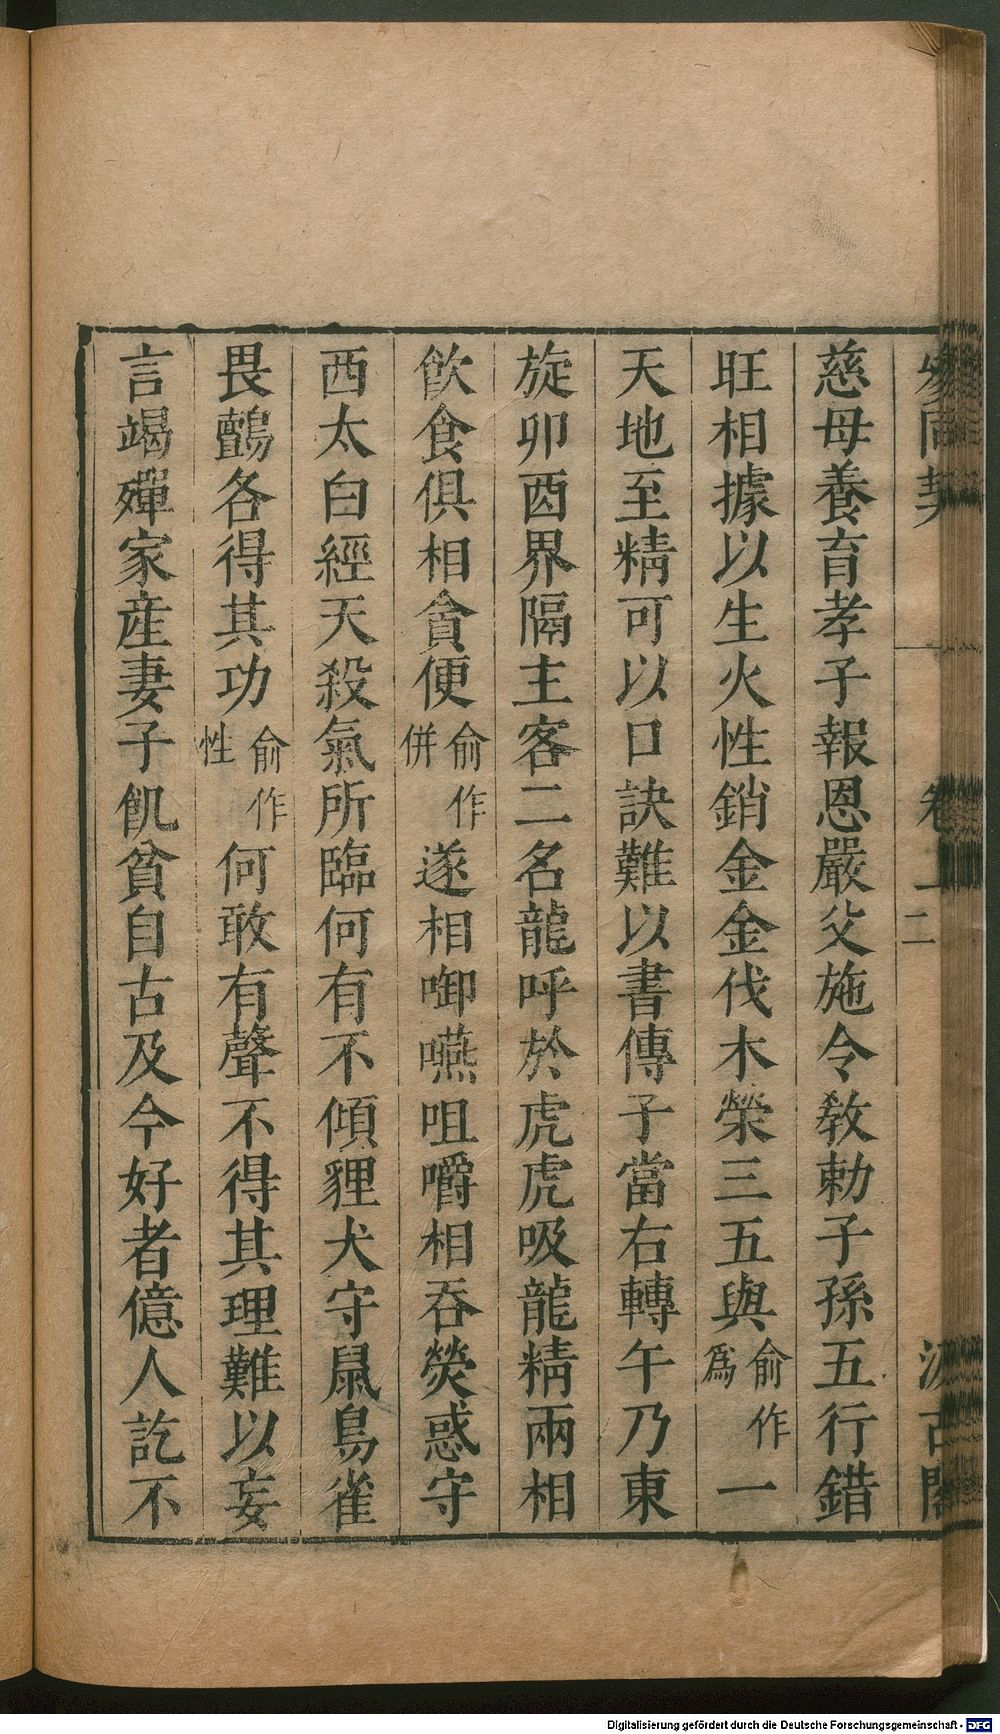 參同契 卷上 二 汲古閣
慈母養育孝子報恩嚴父施令敎勅子孫五行錯
旺相據以生火性銷金金伐木榮三五與俞作爲一
天地至精可以口訣難以書傳子當右轉午乃東
旋卯酉界隔主客二名龍呼於虎虎吸龍精兩相
飲食俱相貪便俞作併遂相啣嚥咀嚼相吞熒惑守
西太白經天殺氣所臨何有不傾貍犬守鼠鳥雀
畏鸇各得其功俞作性何敢有聲不得其理難以妄
言竭殫家産妻子飢貧自古及今好者億人訖不
Digitalisierung gefördert durch die Deutsche Forschungsgemeinschaft - DFG